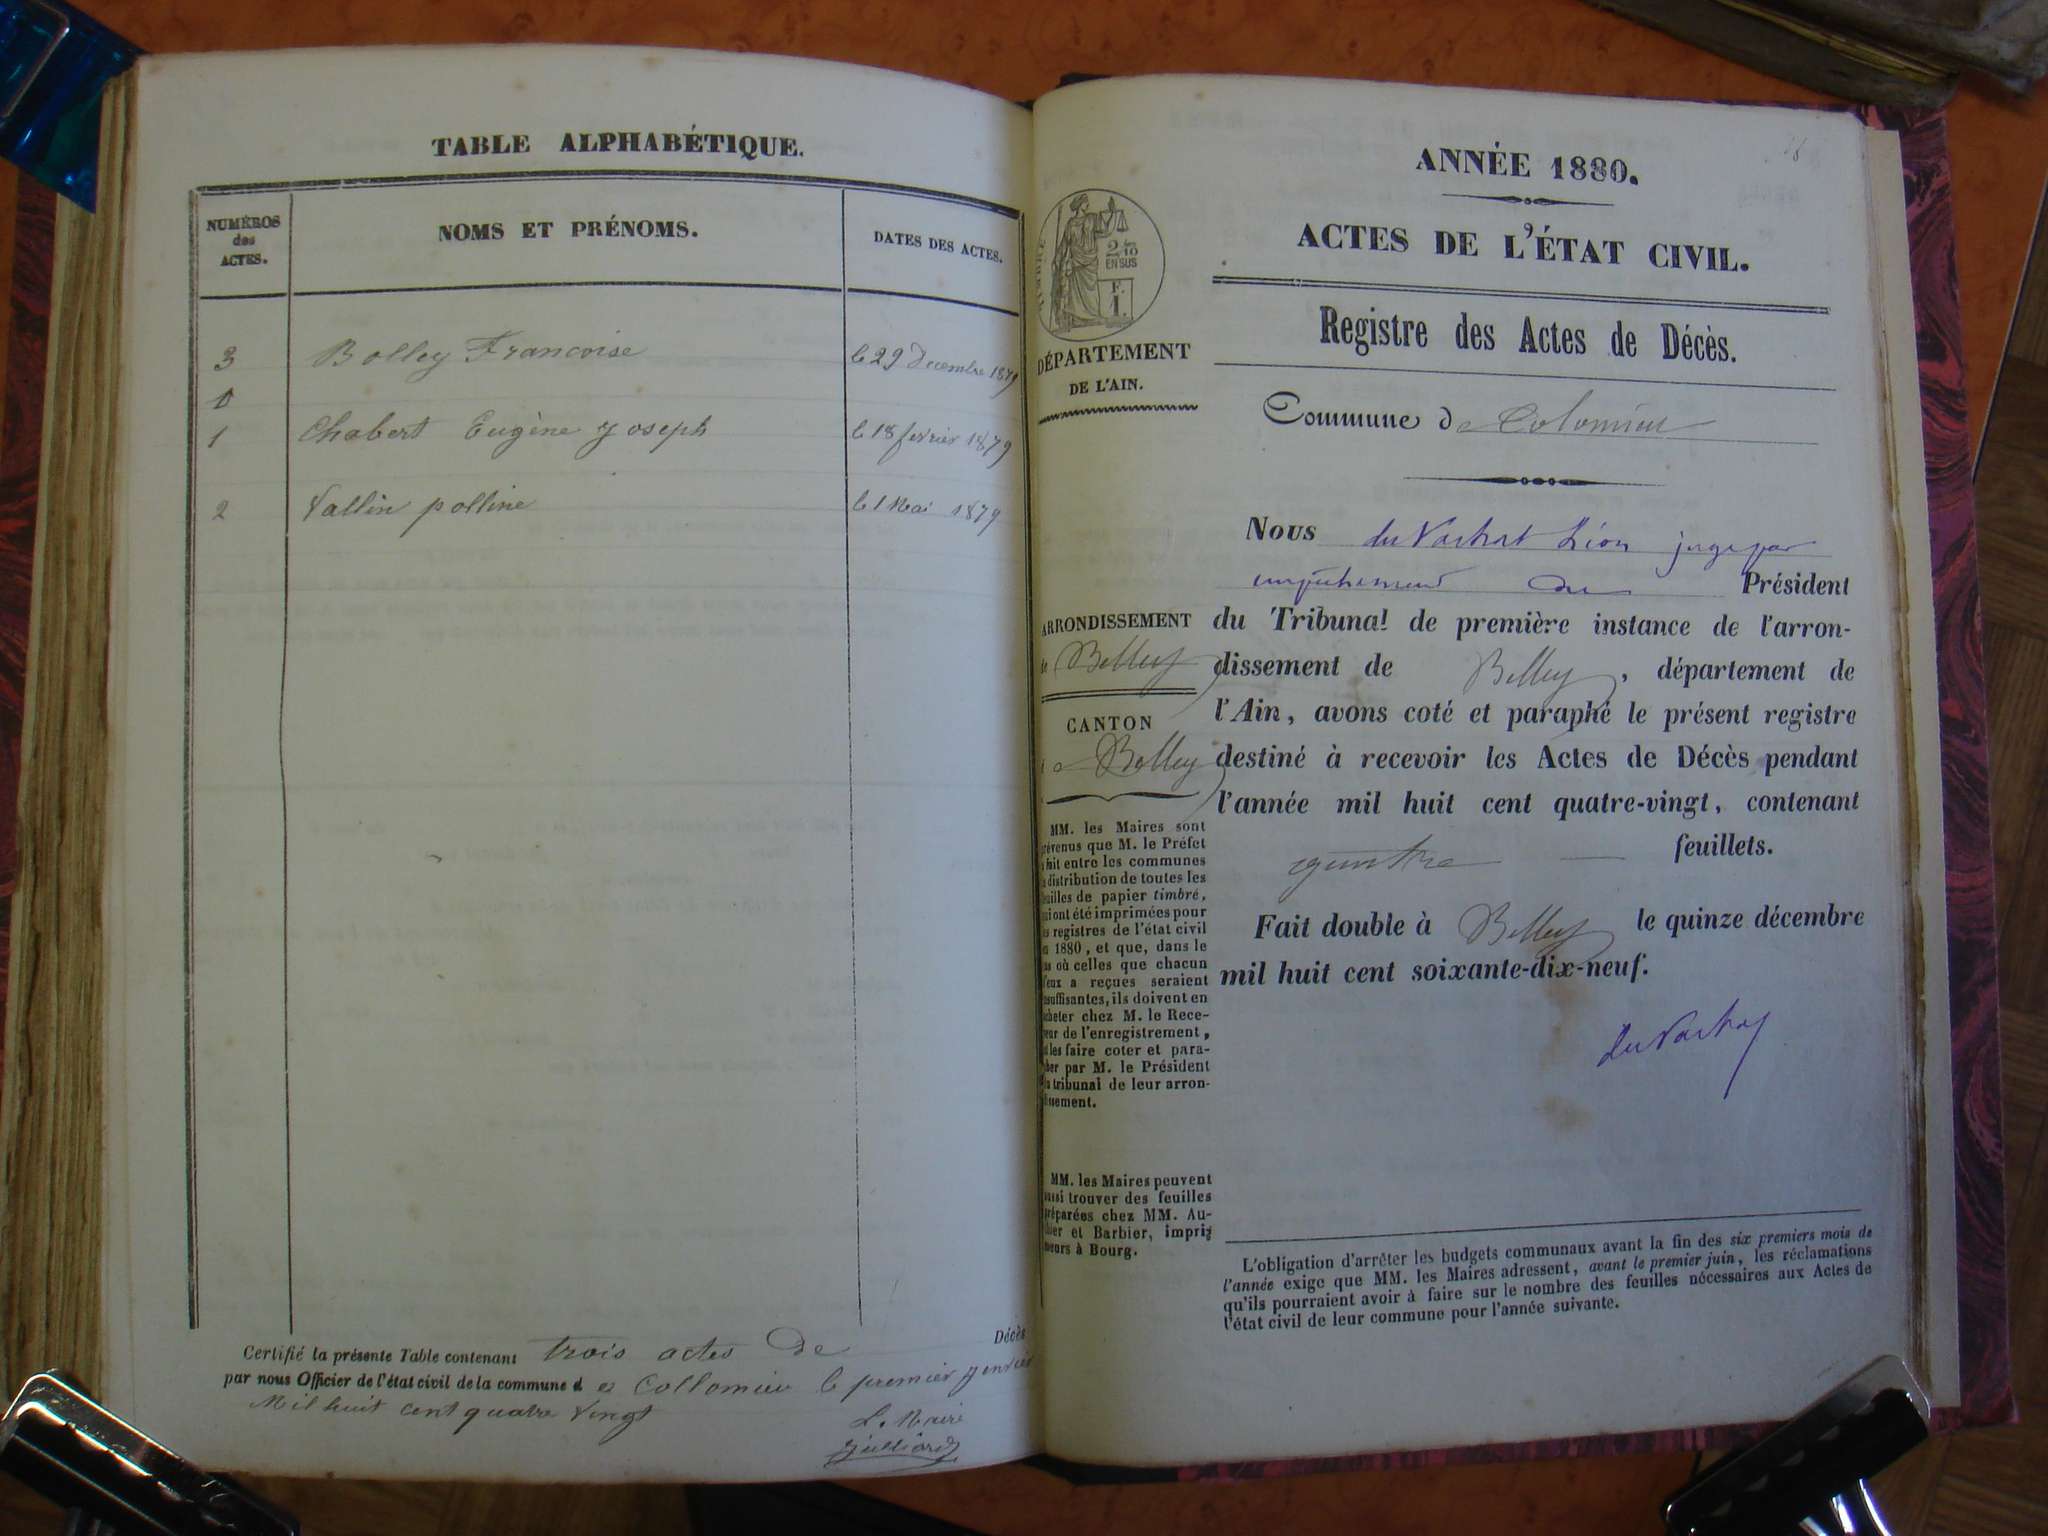 TABLE ALPHABÉTIQUE.
NUMÉROS
des
ACTES.
NOMS ET PRÉNOMS.
DATES DES ACTES.
3 Bolley Francoise le 29 Decembre 1879
1 Chabert Eugène Joseph le 18 fevrier 1879
2 Vallin polline le 1 Mai 1879
Certifié la présente Table contenant trois actes de Décès
par nous Officier de l'état civil de la commune de Collomieu le premier janvier
Mil huit cent quatre vingt
Le Maire
Julliard
ANNÉE 1880.
ACTES DE L'ÉTAT CIVIL.
Registre des Actes de Décès.
TIMBRE
2/10
EN SUS
F.
1.
DÉPARTEMENT
DE L'AIN.
Commune de Colomieu
ARRONDISSEMENT
de Belley
CANTON
de Belley
MM. les Maires sont
prévenus que M. le Préfet
a fait entre les communes
la distribution de toutes les
feuilles de papier timbré,
qui ont été imprimées pour
les registres de l'état civil
en 1880, et que, dans le
cas où celles que chacun
d'eux a reçues seraient
insuffisantes, ils doivent en
acheter chez M. le Rece-
veur de l'enregistrement,
et les faire coter et para-
pher par M. le Président
du tribunal de leur arron-
dissement.
MM. les Maires peuvent
aussi trouver des feuilles
préparées chez MM. Au-
thier et Barbier, impri-
meurs à Bourg.
Nous du Vachat Léon juge par
empêchement du Président
du Tribunal de première instance de l'arron-
dissement de Belley, département de
l'Ain, avons coté et paraphé le présent registre
destiné à recevoir les Actes de Décès pendant
l'année mil huit cent quatre-vingt, contenant
quatre feuillets.
Fait double à Belley le quinze décembre
mil huit cent soixante-dix-neuf.
du Vachat
L'obligation d'arrêter les budgets communaux avant la fin des six premiers mois de
l'année exige que MM. les Maires adressent, avant le premier juin, les réclamations
qu'ils pourraient avoir à faire sur le nombre des feuilles nécessaires aux Actes de
l'état civil de leur commune pour l'année suivante.